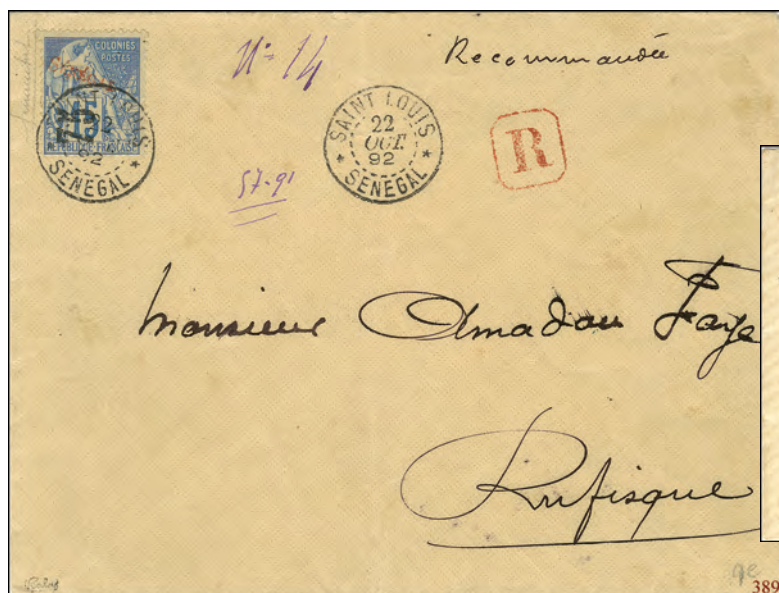 COLONIES
POSTES
75
RÉPUBLIQUE FRANÇAISE
SAINT LOUIS
92
SENEGAL
No 14
Recommandée
SAINT LOUIS
22
OCT.
92
SENEGAL
R
57-91
Monsieur Amadou Faye
Rufisque
389